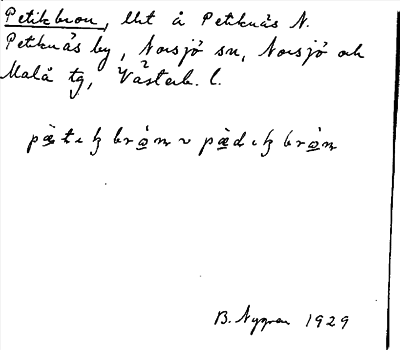 Petikbron, lht å Petiknäs N.
Petiknäs by, Norsjö sn, Norsjö och
Malå tg, Västerb. l.
B. Nygren 1929